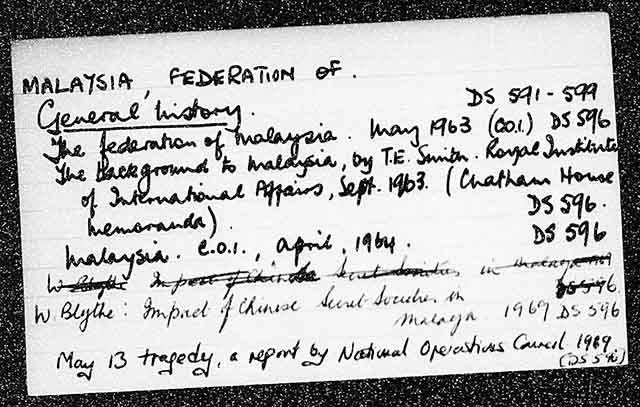 MALAYSIA, FEDERATION OF.
General history. DS 591-599
The federation of Malaysia. May 1963 (C.O.I.) DS 596
The Background to Malaysia, by T.E. Smith. Royal Institute
of International Affairs, Sept. 1963. (Chatham House
memoranda). DS 596.
Malaysia. C.O.I., April, 1964. DS 596
W Blythe Impact of Chinese Secret Societies in Malaya
DS 596.
W. Blythe: Impact of Chinese Secret Societies in
Malaya 1969 DS 596
May 13 tragedy, a report by National Operations Council 1969
(DS 596)